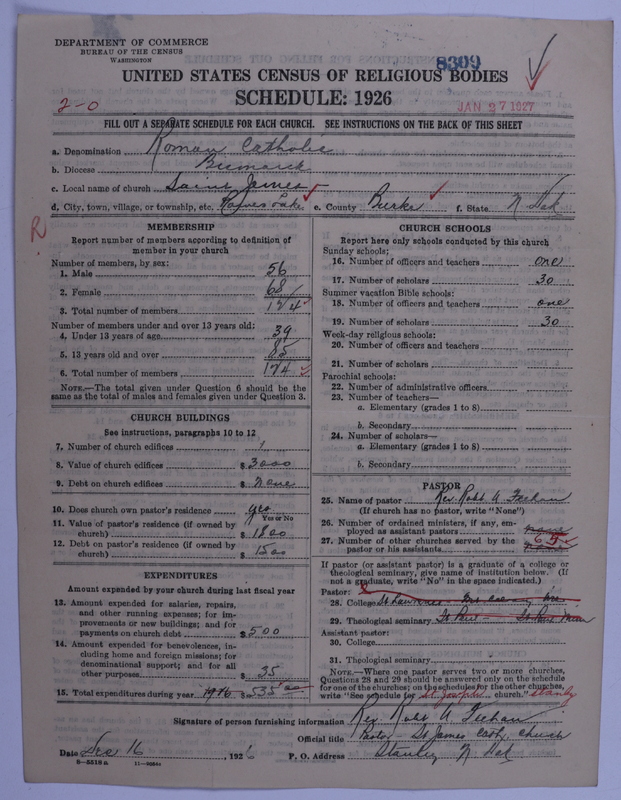 DEPARTMENT OF COMMERCE
BUREAU OF THE CENSUS
WASHINGTON
8309
UNITED STATES CENSUS OF RELIGIOUS BODIES
SCHEDULE: 1926
2-0
JAN 27 1927
FILL OUT A SEPARATE SCHEDULE FOR EACH CHURCH. SEE INSTRUCTIONS ON THE BACK OF THIS SHEET
a. Denomination Roman Catholic
b. Diocese Bismarck
c. Local name of church Saint James
d. City, town, village, or township, etc. Powers Lake e. County Burke f. State N. Dak
R
MEMBERSHIP
Report number of members according to definition of
member in your church
Number of members, by sex:
1. Male 56
2. Female 68
3. Total number of members 124
Number of members under and over 13 years old:
4. Under 13 years of age 39
5. 13 years old and over 85
6. Total number of members 124
NOTE.—The total given under Question 6 should be the
same as the total of males and females given under Question 3.
CHURCH BUILDINGS
See instructions, paragraphs 10 to 12
7. Number of church edifices 1
8. Value of church edifices $3000
9. Debt on church edifices $None
10. Does church own pastor's residence? yes
Yes or No
11. Value of pastor's residence (if owned by
church) $1800
12. Debt on pastor's residence (if owned by
church) $1500
EXPENDITURES
Amount expended by your church during last fiscal year
13. Amount expended for salaries, repairs,
and other running expenses; for im-
provements or new buildings; and for
payments on church debt $500
14. Amount expended for benevolences, in-
cluding home and foreign missions; for
denominational support; and for all
other purposes $35
15. Total expenditures during year 1926 $535.00
CHURCH SCHOOLS
Report here only schools conducted by this church
Sunday schools:
16. Number of officers and teachers one
17. Number of scholars 30
Summer vacation Bible schools:
18. Number of officers and teachers one
19. Number of scholars 30
Week-day religious schools:
20. Number of officers and teachers
21. Number of scholars
Parochial schools:
22. Number of administrative officers
23. Number of teachers—
a. Elementary (grades 1 to 8)
b. Secondary
24. Number of scholars—
a. Elementary (grades 1 to 8)
b. Secondary
PASTOR
25. Name of pastor Rev. Robt A. Feehan
(If church has no pastor, write "None")
26. Number of ordained ministers, if any, em-
ployed as assistant pastors none
27. Number of other churches served by the
pastor or his assistants none
If pastor (or assistant pastor) is a graduate of a college or
theological seminary, give name of institution below. (If
not a graduate, write "No" in the space indicated.)
Pastor:
28. College St Lawrence Wis
29. Theological seminary St Paul - St Paul Minn
Assistant pastor:
30. College
31. Theological seminary
NOTE.—Where one pastor serves two or more churches,
Questions 28 and 29 should be answered only on the schedule
for one of the churches; on the schedules for the other churches,
write "See schedule for St. Joseph's church." Stanley
Signature of person furnishing information Rev. Robt A. Feehan
Official title Pastor - St James Cath. Church
Date Dec 16, 1926 P. O. Address Stanley N Dak
8—5518a